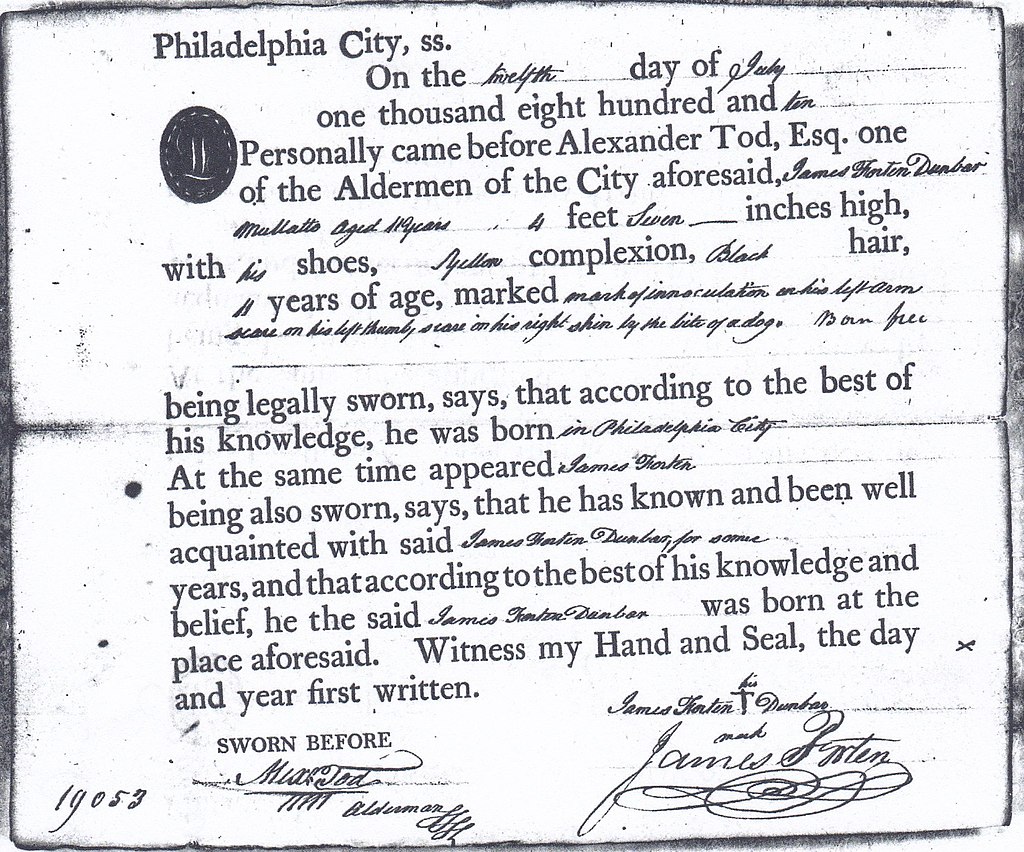 Philadelphia City, ss.
On the twelfth day of July
one thousand eight hundred and ten
Personally came before Alexander Tod, Esq. one
of the Aldermen of the City aforesaid, James Forten Dunbar
Mullatto Aged 11 years 4 feet Seven inches high,
with his shoes, Yellow complexion, Black hair,
11 years of age, marked mark of innoculation on his left arm
scare on his left thumb, scare on his right shin by the bite of a dog. Born free
being legally sworn, says, that according to the best of
his knowledge, he was born in Philadelphia City
At the same time appeared James Forten
being also sworn, says, that he has known and been well
acquainted with said James Forten Dunbar, for some
years, and that according to the best of his knowledge and
belief, he the said James Forten Dunbar was born at the
place aforesaid. Witness my Hand and Seal, the day x
and year first written.
his
James Forten † Dunbar
mark
SWORN BEFORE
James Forten
Alexr Tod
Alderman
19053